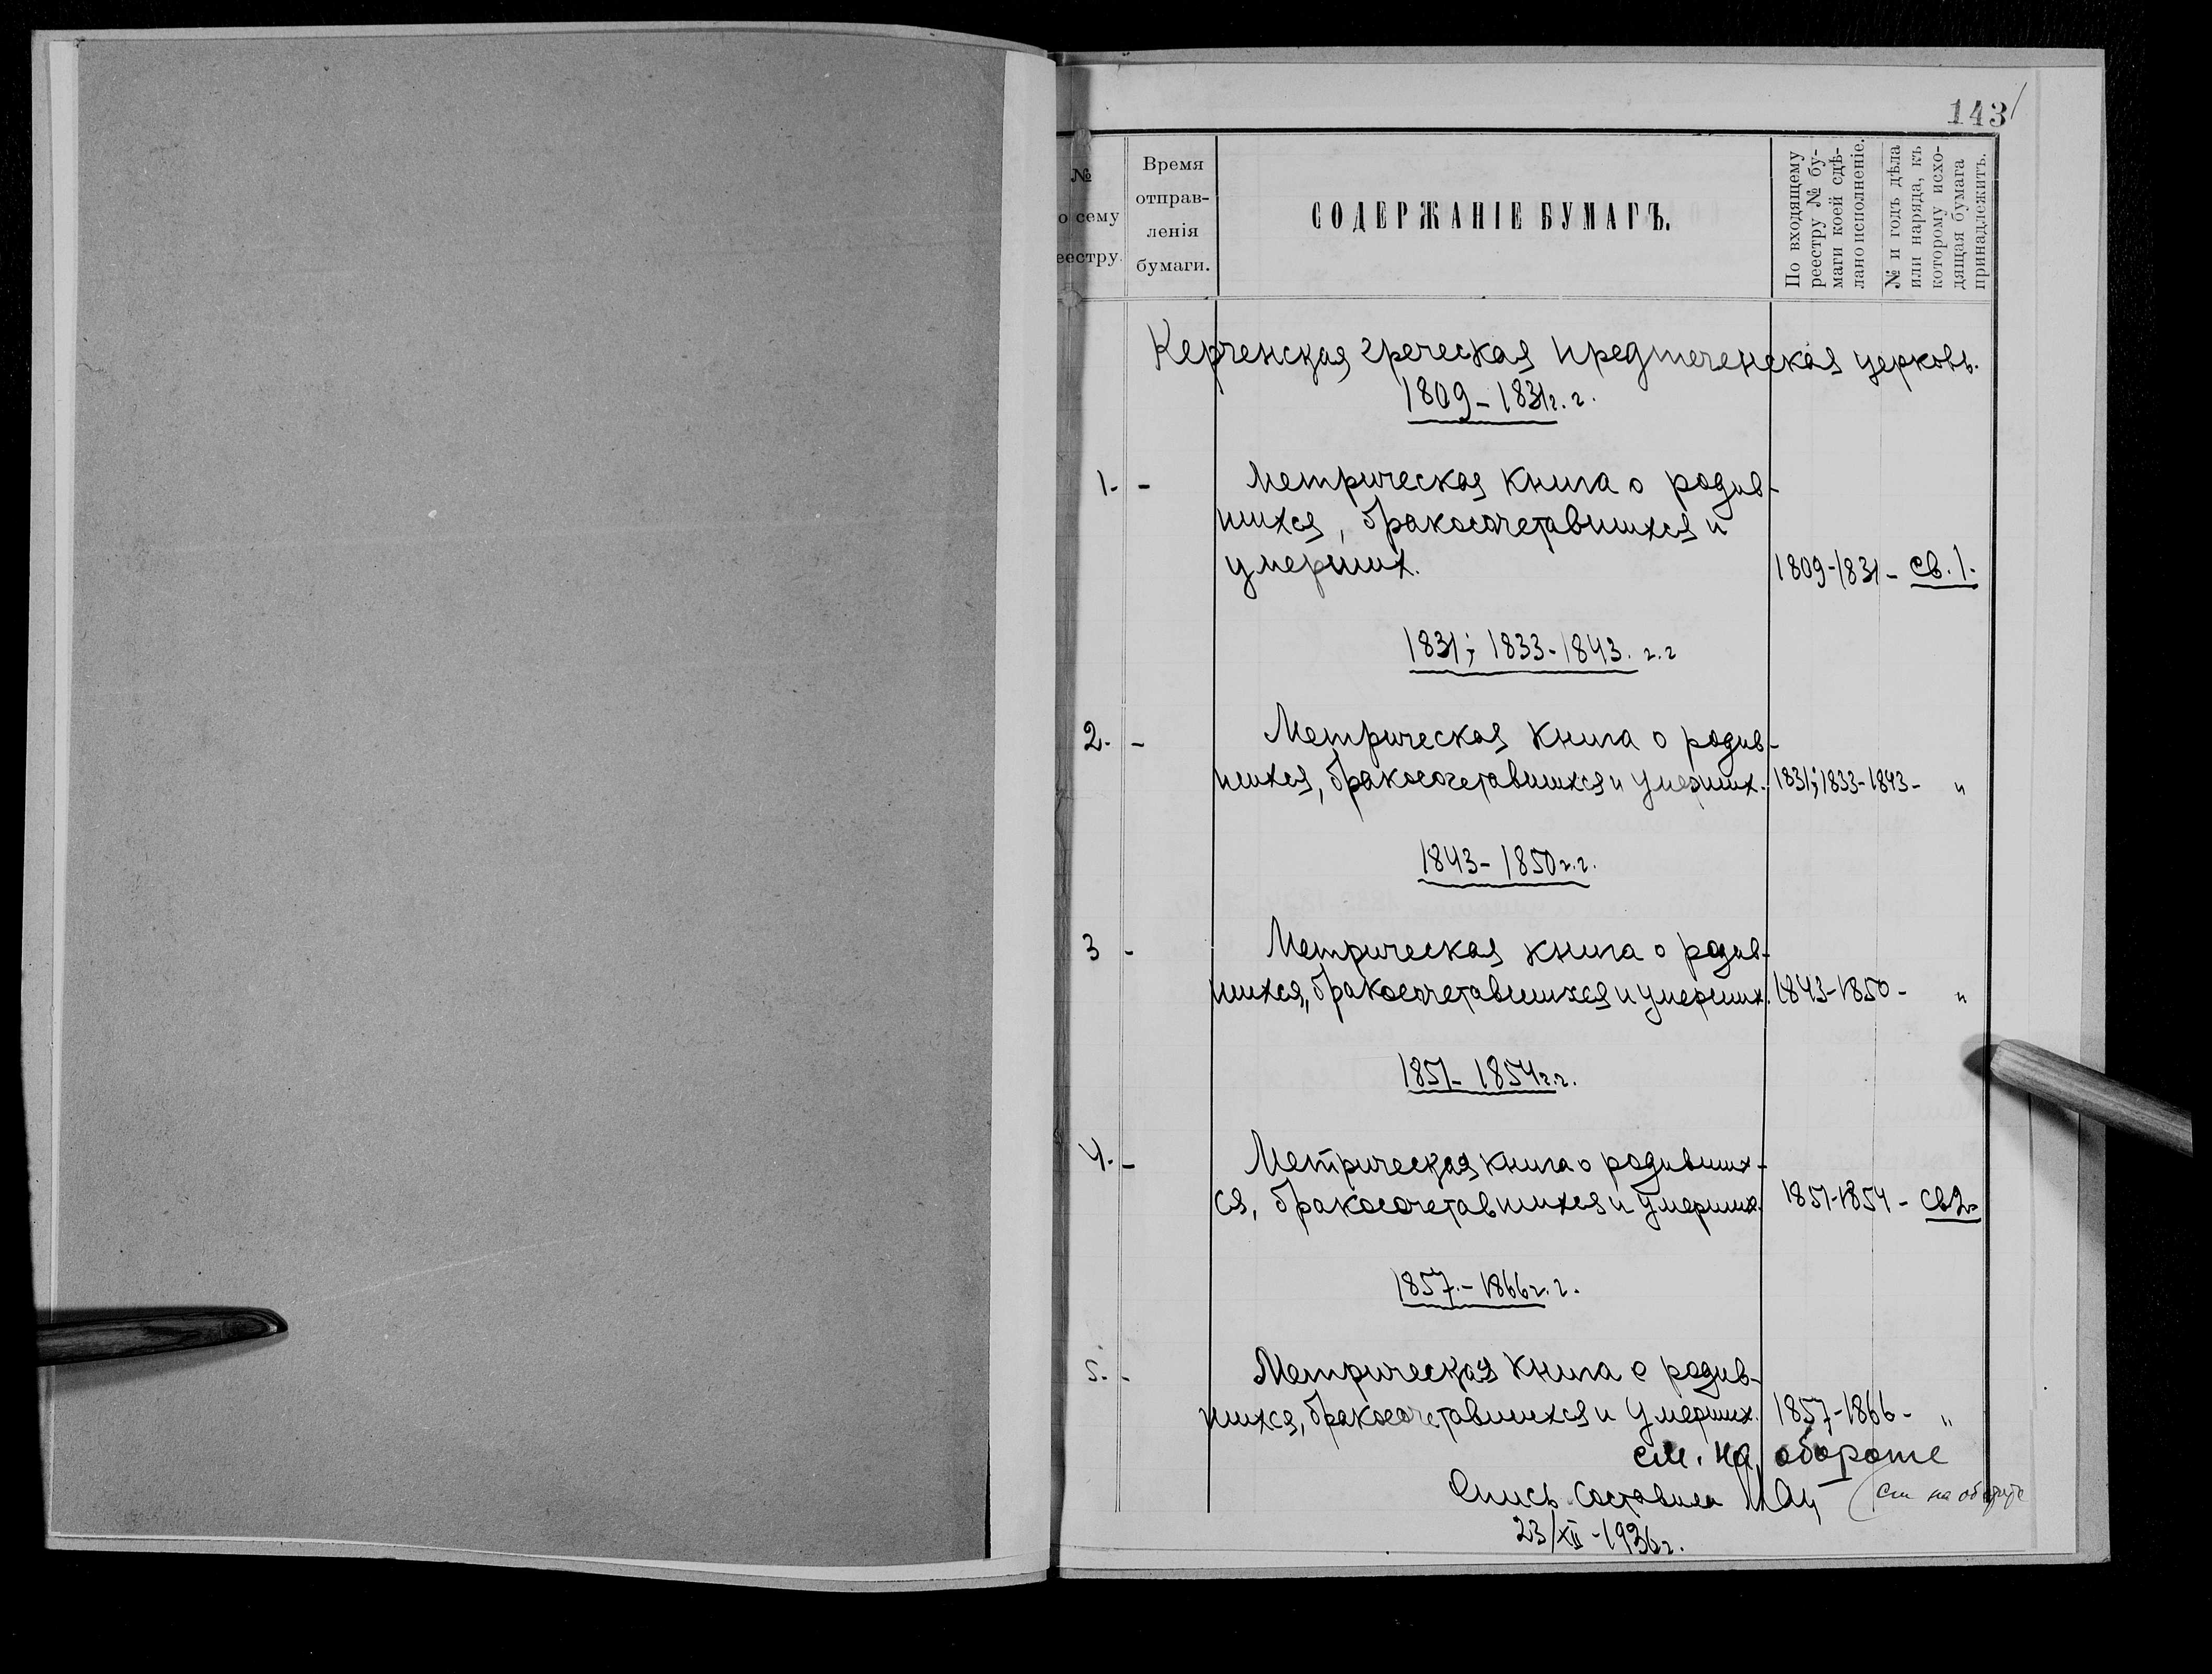 143
№
о сему
еестру.
Время
отправ-
ленія
бумаги.
СОДЕРЖАНІЕ БУМАГЪ.
По входящему
реестру № бу-
маги коей сдѣ-
лано исполненіе.
№ и годъ дѣла
или наряда, къ
которому исхо-
дящая бумага
принадлежитъ.
Керченская греческая предтеченская церковь.
1809-1831г.г.
1.- - Метрическая книга о родив-
шихся, бракосочетавшихся и
умерших. 1809-1831- св.1.
1831; 1833-1843. г.г
2.- - Метрическая книга о родив-
шихся, бракосочетавшихся и умерших. 1831; 1833-1843- "
1843-1850г.г.
3 - Метрическая книга о родив-
шихся, бракосочетавшихся и умерших. 1843-1850- "
1851-1854г.г.
4.- - Метрическая книга о родивших-
ся, бракосочетавшихся и умерших. 1851-1854- св2-
1857.-1866г.г.
5.- - Метрическая книга о родив-
шихся, бракосочетавшихся и умерших. 1857-1866- "
см. на обороте
Опись составила (см на обороте
23/XII-1936г.